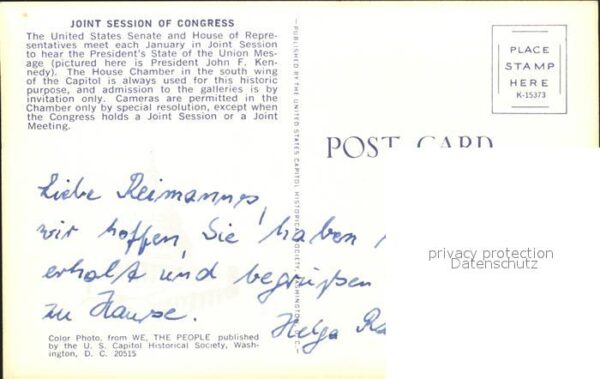 JOINT SESSION OF CONGRESS
The United States Senate and House of Repre-
sentatives meet each January in Joint Session
to hear the President's State of the Union Mes-
sage (pictured here is President John F. Ken-
nedy). The House Chamber in the south wing
of the Capitol is always used for this historic
purpose, and admission to the galleries is by
invitation only. Cameras are permitted in the
Chamber only by special resolution, except when
the Congress holds a Joint Session or a Joint
Meeting.
PLACE
STAMP
HERE
K-15373
POST CARD
Liebe Reimanns,
wir hoffen, Sie haben
erholt und begrüßen
zu Hause.
Helga
privacy protection
Datenschutz
Color Photo. from WE, THE PEOPLE published
by the U. S. Capitol Historical Society, Wash-
ington, D. C. 20515
PUBLISHED BY THE UNITED STATES CAPITOL HISTORICAL SOCIETY, WASHINGTON, D. C.